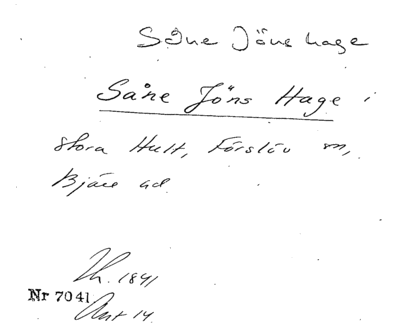 Såne Jöns hage
Såne Jöns Hage i
Stora Hult, Förslöv sn,
Bjäre hd
Lh. 1841
Nr 7041
Ant 14